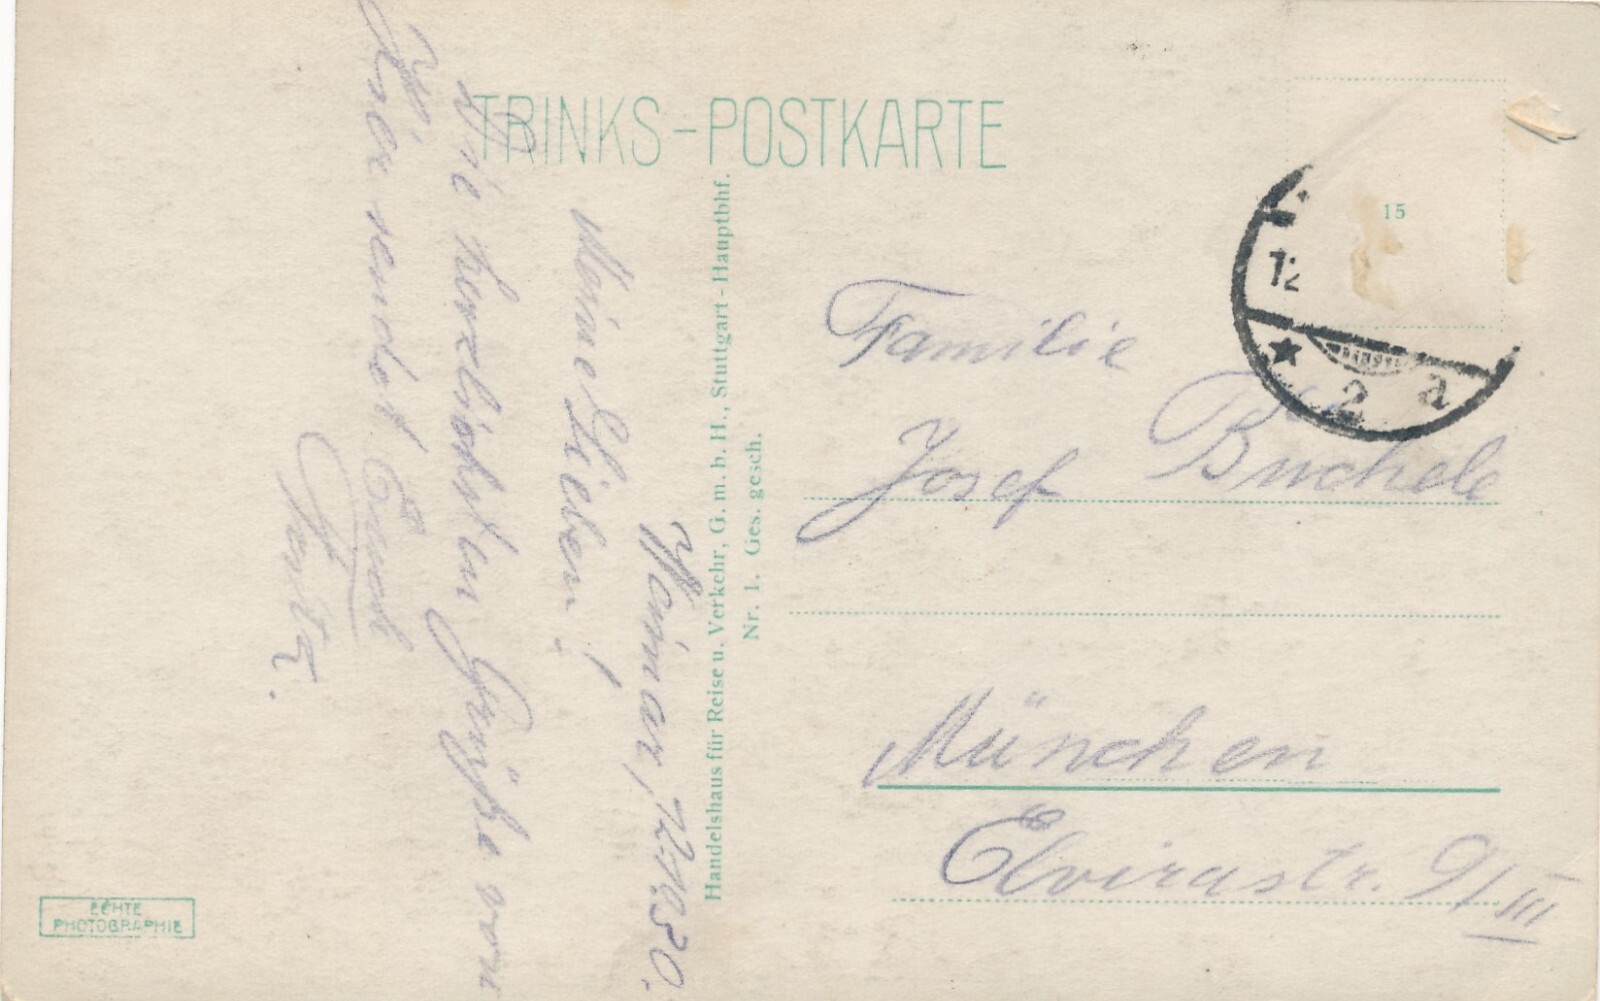 TRINKS-POSTKARTE
15
12
2 a
Weimar, 12.11.30.
Meine Lieben!
Die herzlichsten Grüße von
hier sendet Euch
Handelshaus für Reise u. Verkehr, G. m. b. H., Stuttgart-Hauptbhf.
Nr. 1. Ges. gesch.
Familie
Josef Büchele
München
Elvirastr. 9/III
ECHTE
PHOTOGRAPHIE